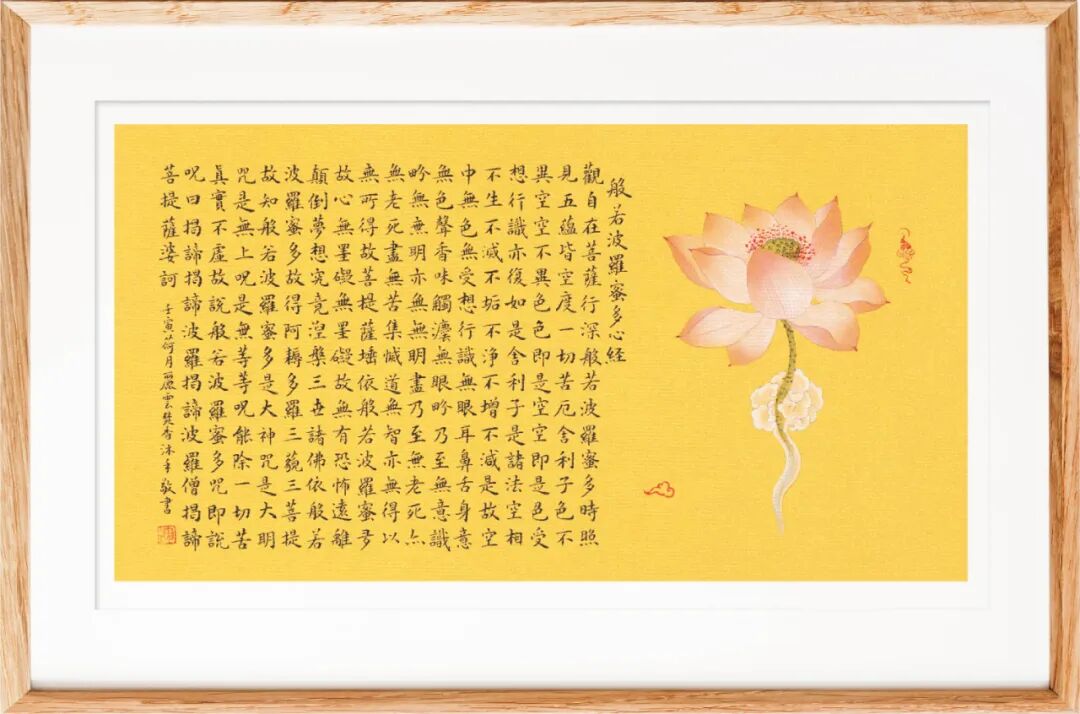 般若波羅蜜多心経
觀自在菩薩行深般若波羅蜜多時照
見五蘊皆空度一切苦厄舍利子色不
異空空不異色色即是空空即是色受
想行識亦復如是舍利子是諸法空相
不生不滅不垢不淨不增不減是故空
中無色無受想行識無眼耳鼻舌身意
無色聲香味觸灋無眼畍乃至無意識
畍無無明亦無無明盡乃至無老死亦
無老死盡無苦集滅道無智亦無得以
無所得故菩提薩埵依般若波羅蜜多
故心無罣礙無罣礙故無有恐怖遠離
顛倒夢想究竟涅槃三世諸佛依般若
波羅蜜多故得阿耨多羅三藐三菩提
故知般若波羅蜜多是大神咒是大明
咒是無上呪是無等等呪能除一切苦
真實不虛故說般若波羅蜜多咒即說
呪曰揭諦揭諦波羅揭諦波羅僧揭諦
菩提薩婆訶
壬寅荷月雲焚香沐手敬書